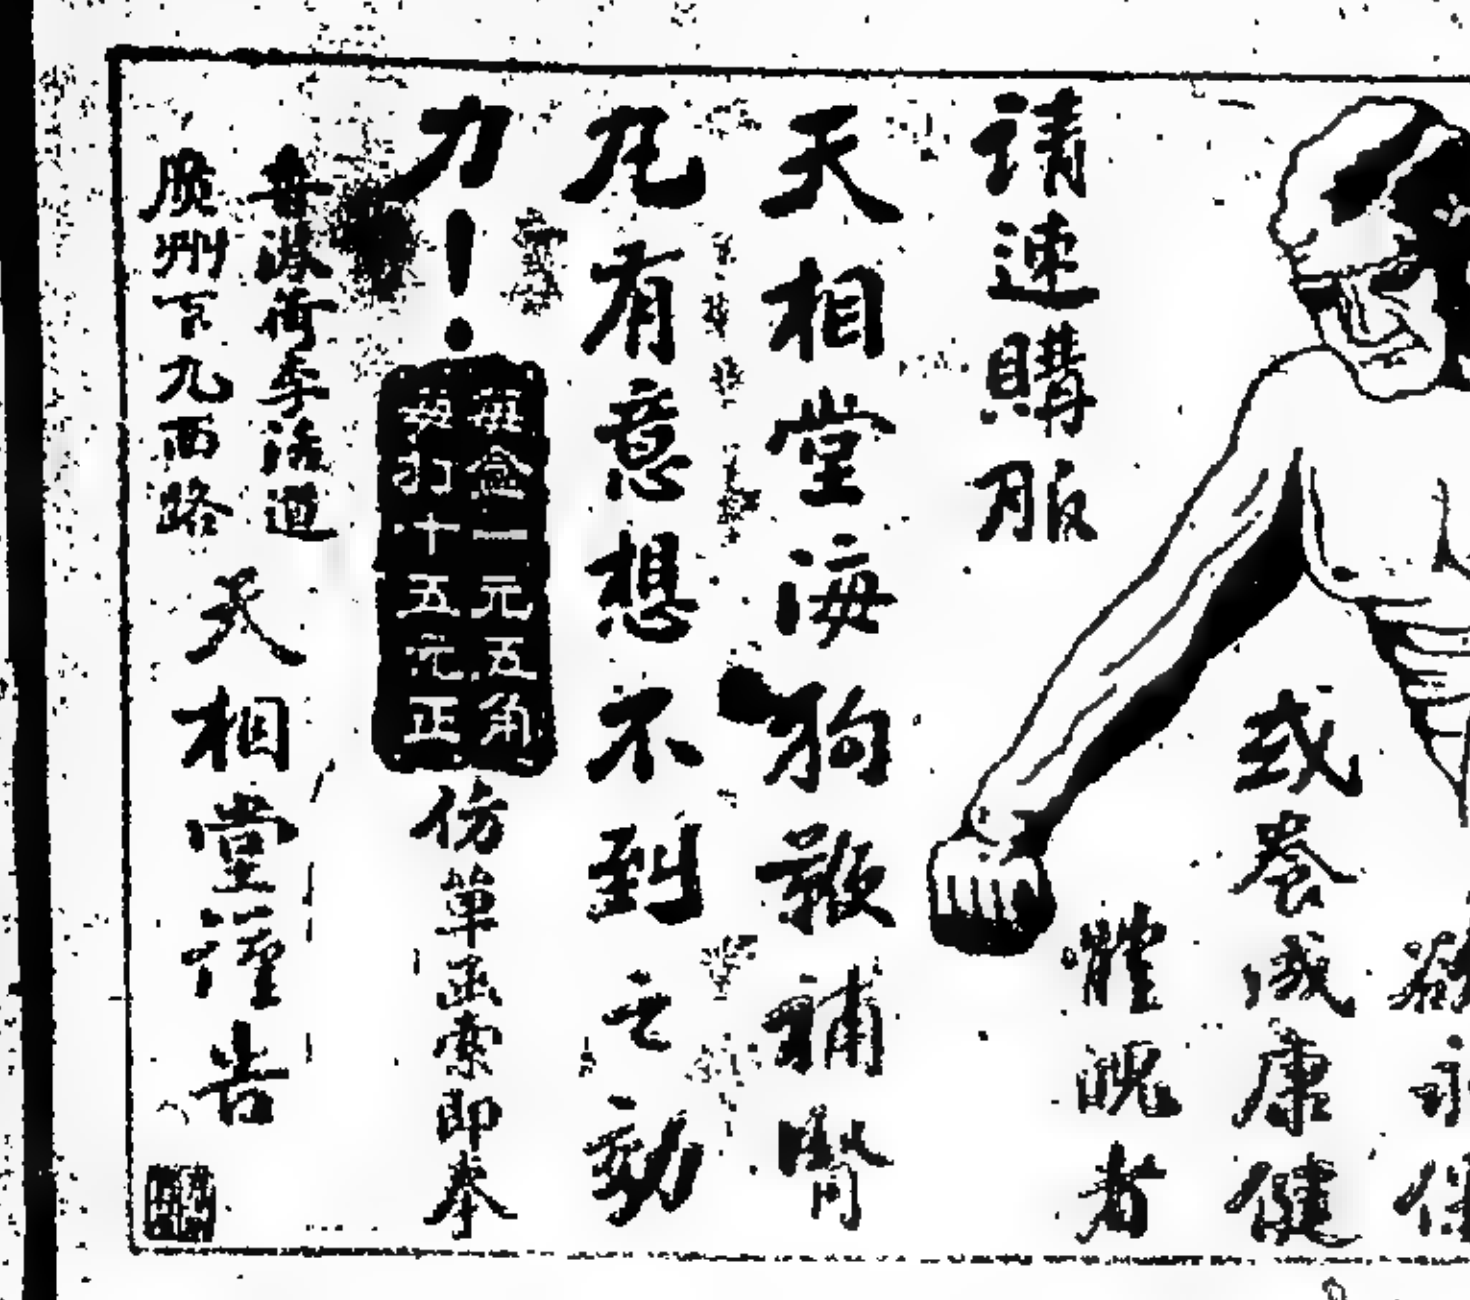 欲永保
或養成康健
體魄者
請速購服
天相堂海狗鞭補腎
丸有意想不到之効
力！
每盒一元五角
每打十五元正
仿單函索即奉
香港荷李活道
廣州下九西路
天相堂謹告